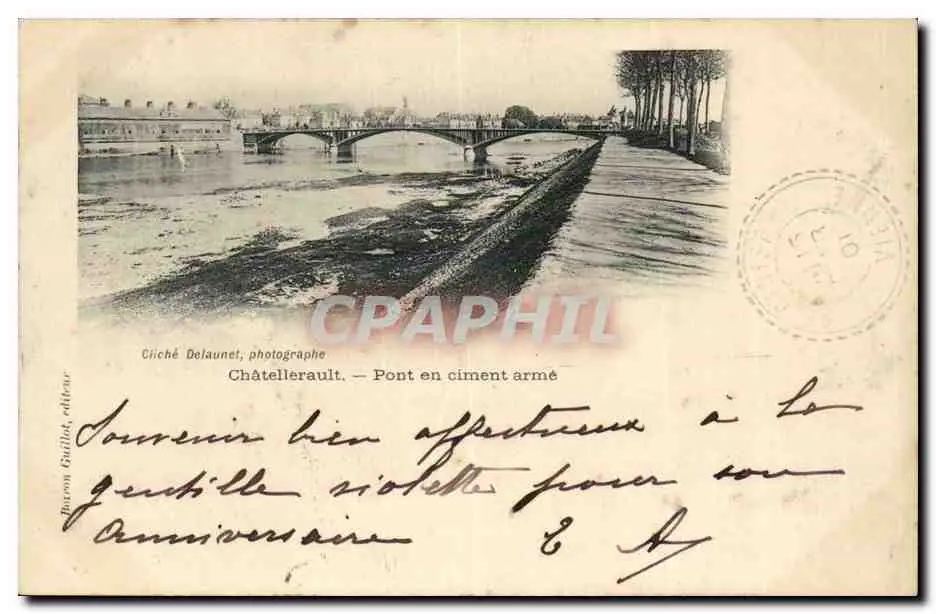 CPAPHIL
Cliché Delaunet, photographe
Châtellerault. — Pont en ciment armé
Boiron Guillot, editeur
Souvenir bien affectueux à la
gentille violette pour son
anniversaire E A